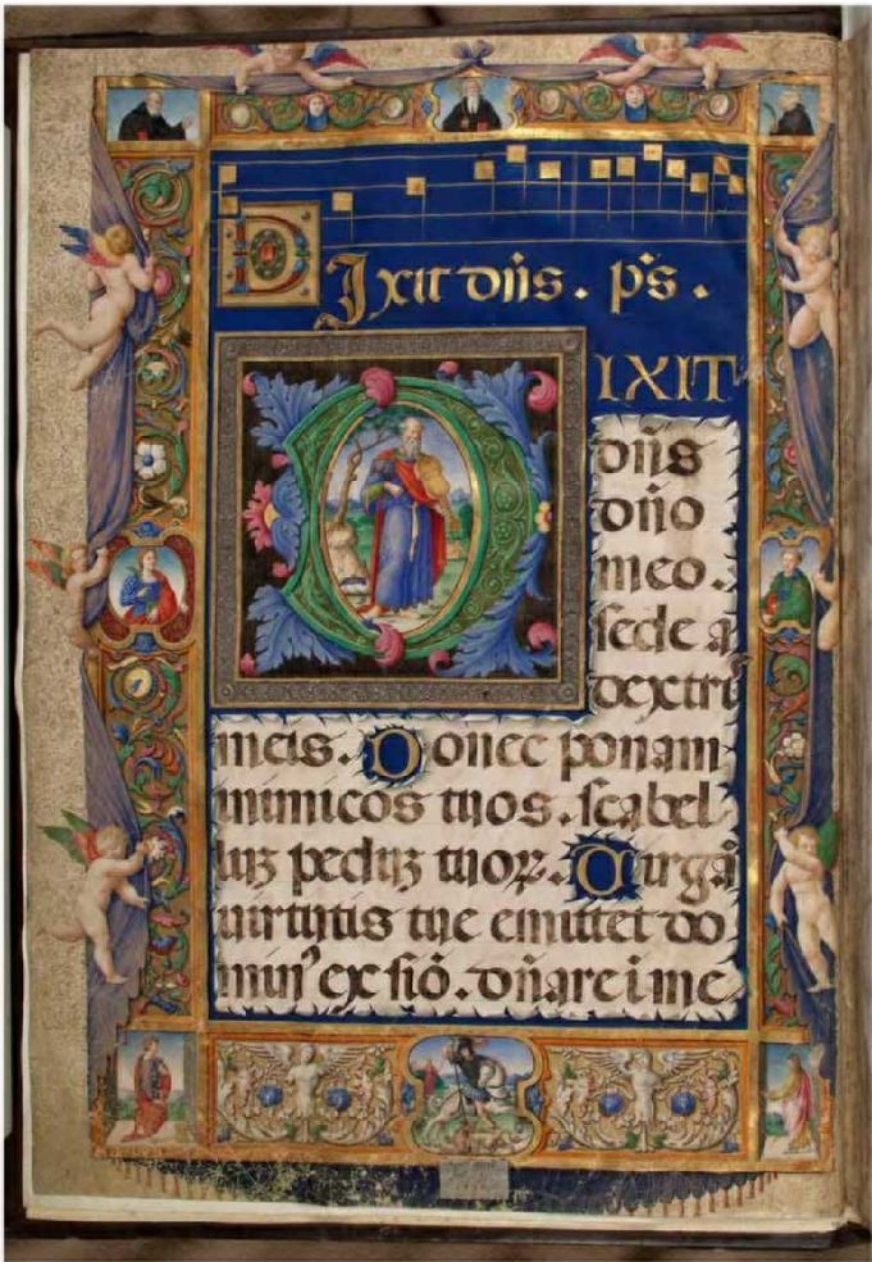 D
Ixit dñs. p̄s.
DIXIT
dñs
dño
meo.
sede a
dextri
meis. Donec ponam
inimicos tuos. scabel
luʒ peduʒ tuoꝝ. Uirgā
uirtutis tue emittet do
minꝰ ex siō. dñare i me